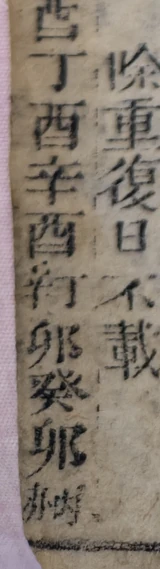 除重復日不載
酉丁酉辛酉丁卯癸卯